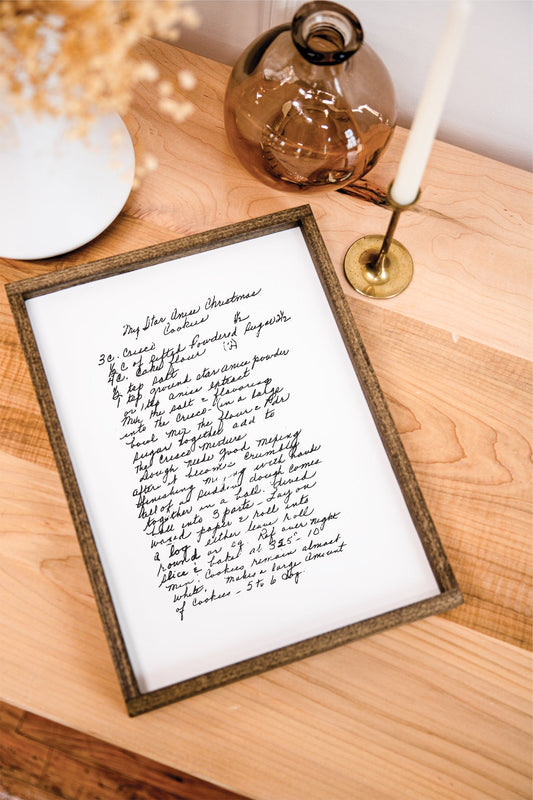 My Star Anise Christmas
Cookies
3 C. Crisco 1/2
1/2 C of Sifted Powdered Sugar 2 1/2
4 C. Cake flour (2)
1/2 tsp salt
1 tsp ground star anise powder
or 1 tsp anise extract
Mix the salt & flavoring
into the Crisco - in a large
bowl mix the flour & Pdr
sugar together add to
The Crisco mixture
Dough needs good mixing
after it becomes crumbly
finishing mixing with hands
all of a sudden dough comes
together in a ball. Divide
ball into 3 parts - Lay on
waxed paper & roll into
a log, either leave roll
round or sq. Ref over night
Slice & bake at 325° - 10
min. Cookies remain almost
white. Makes a large amount
of Cookies - 5 to 6 doz.